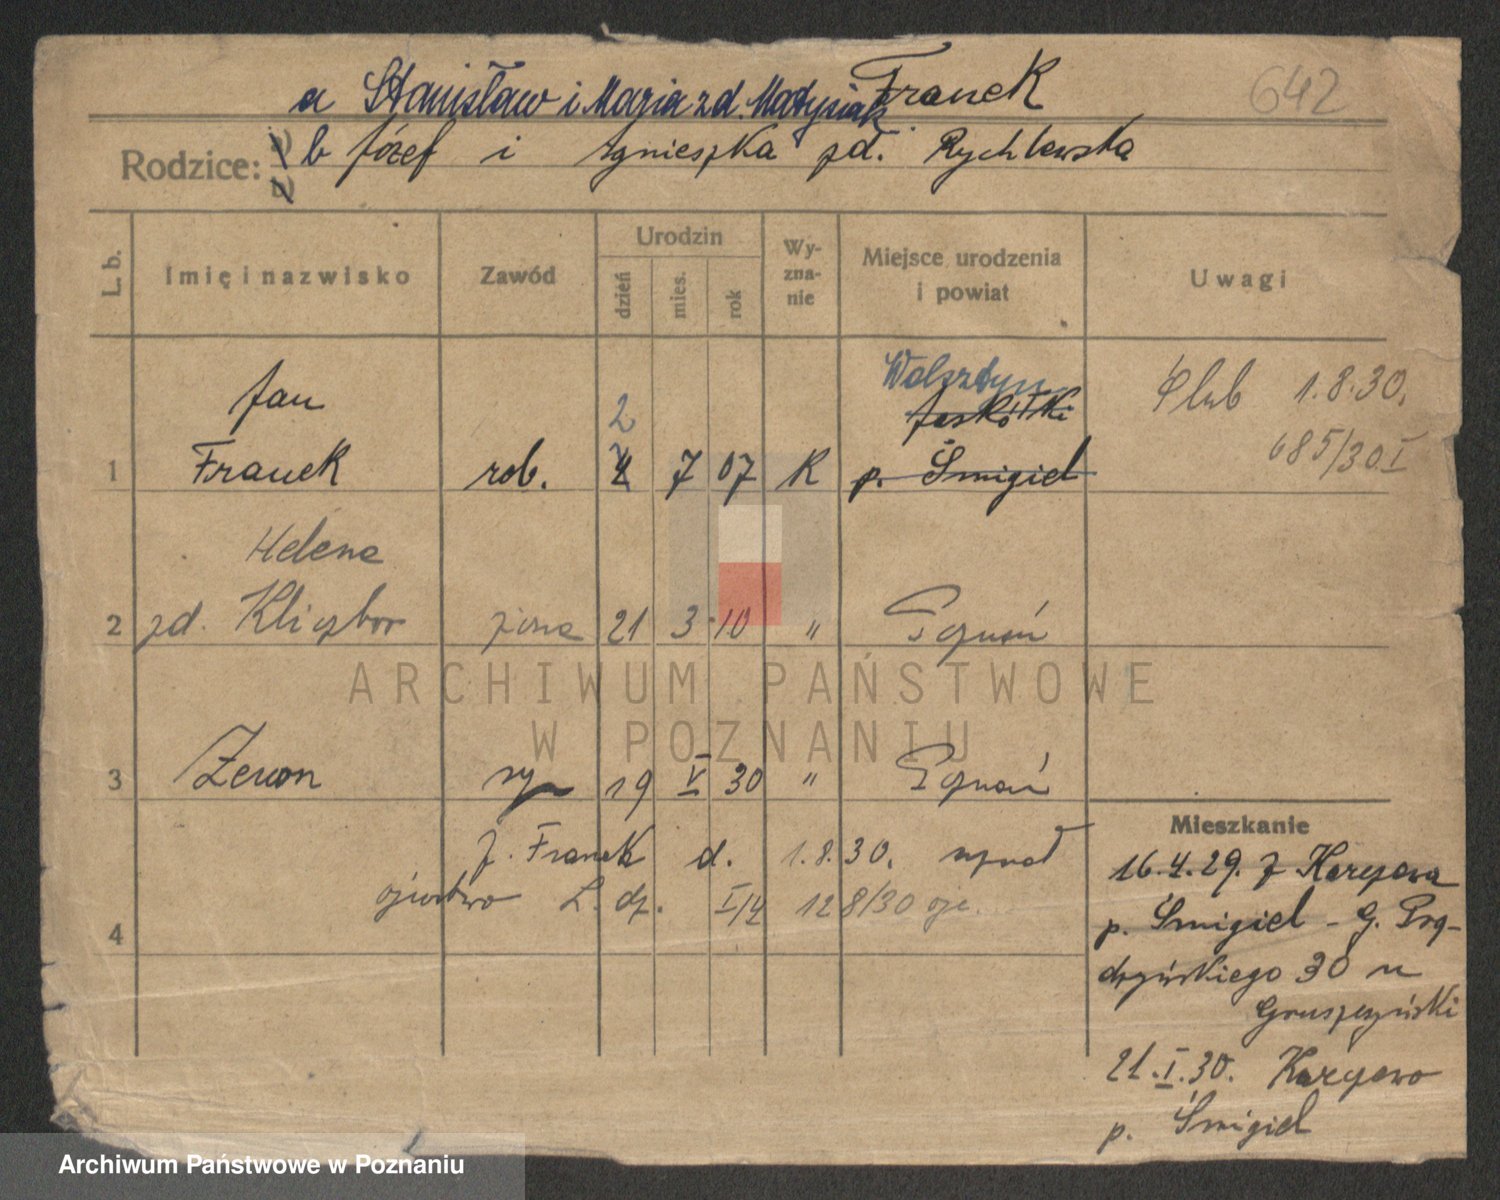 Franek
642
a Stanisław i Maria zd. Matysiak
Rodzice: b Józef i Agnieszka zd. Rychlewska
L. b.
Imię i nazwisko
Zawód
Urodzin
dzień
mies.
rok
Wy-
zna-
nie
Miejsce urodzenia
i powiat
Uwagi
Jan
2
Wolsztyn
Jaskółki
Ślub 1.8.30.
685/30 I
1 Franek rob. 7 07 K p. Śmigiel
Helena
2 zd. Kliczbor żona 21 3 10 " Poznań
ARCHIWUM PAŃSTWOWE
W POZNANIU
3 Zenon syn 19 V 30 " Poznań
J. Franek d. 1.8.30. uznał
ojcostwo L. dz. I/4 128/30
4
Mieszkanie
16.4.29. z
p. Śmigiel - G. Prą-
dzyńskiego 30 u
Gruszczyński
21.I.30.
p. Śmigiel
Archiwum Państwowe w Poznaniu